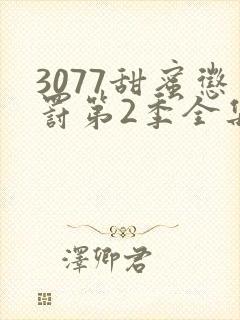 3077甜蜜懲
罰第2季全集
澤卿君